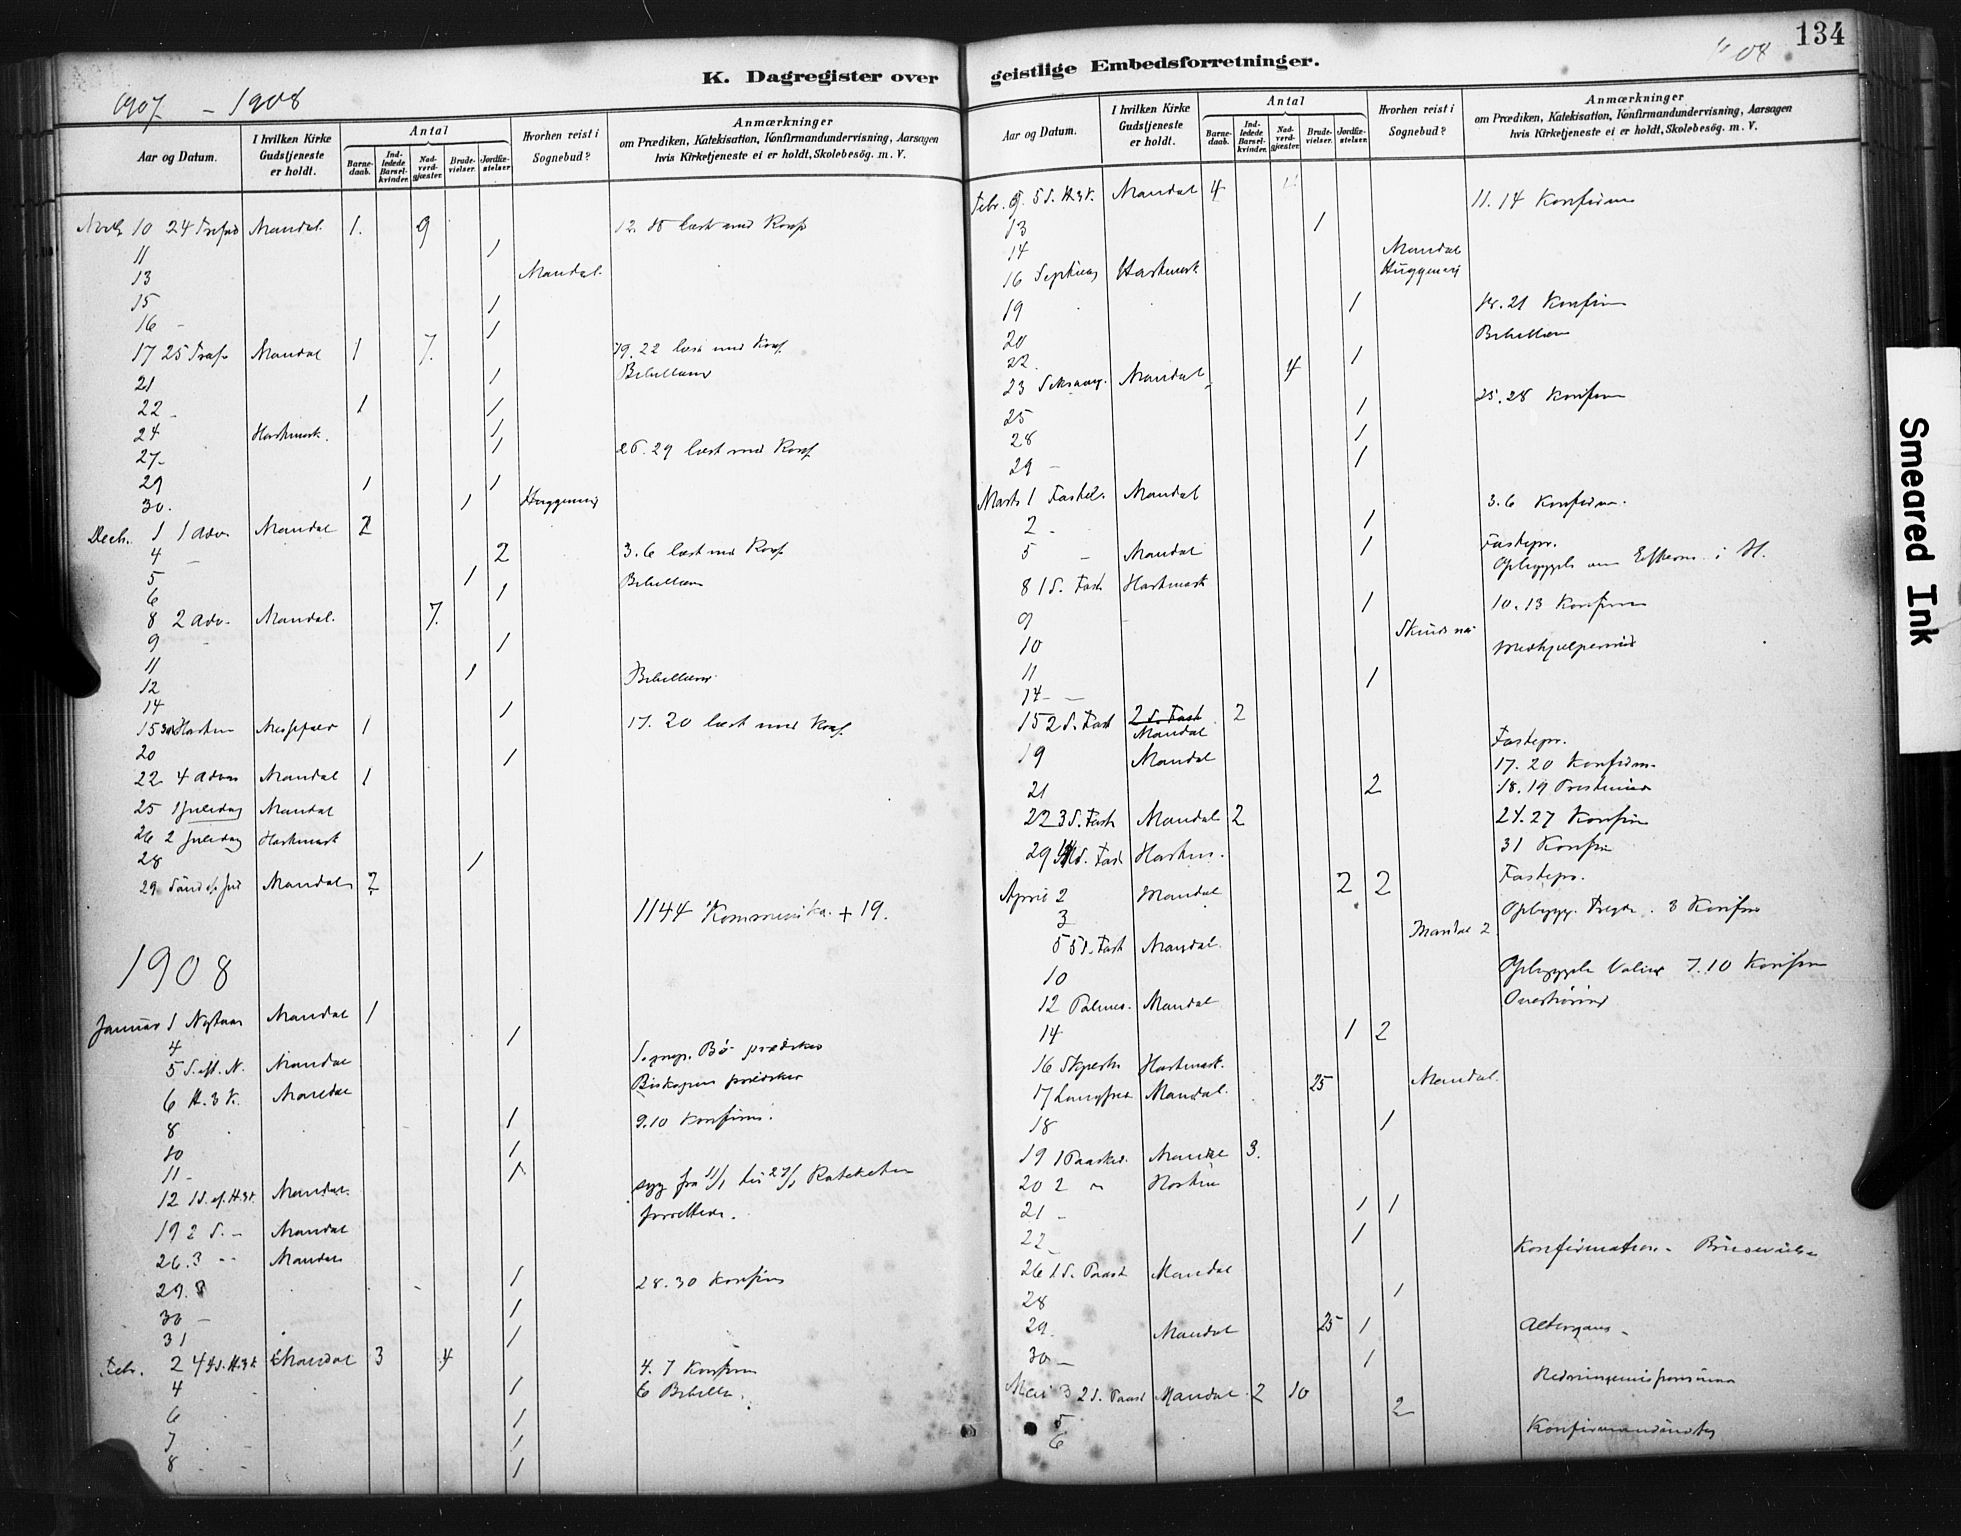 134
K. Dagregister over geistlige Embedsforretninger.
1907 – 1908
Aar og Datum.
I hvilken Kirke Gudstjeneste er holdt.
Antal
Barnedaab.
Indledede Barselkvinder.
Nadverdgjæster.
Brudevielser.
Jordfæstelser.
Hvorhen reist i Sognebud?
Anmærkninger
om Prædiken, Katekisation, Konfirmandundervisning, Aarsagen
hvis Kirketjeneste ei er holdt, Skolebesög. m. V.
10 24 Mandal. 1. 9 12. læst med Konf
11 1
13 Mandal.
15 1
16 – 1
17 25 Mandal 1 7. 19. 22 læst med Konf
21 1 Bibellæsn
22 – 1 1
24 Harkmark. 1
27 – 1 26. 29 læst med Konf
29 1 1
30. 1
Decb. 1 1 Adv. Mandal 2
4 – 2 3. 6 læst med Konf
5 1 Bibellæsn
6 1
8 2 Adv. Mandal. 7.
9 1
11 1
12 Bibellæsn.
14 1
15 Messefald 1 17. 20 læst med Konf.
20 1
22 4 Adven Mandal 1
25 1 Juledag Mandal
26 2 Juledag Harkmark
28 1
29 Mandal 2
1144 + 19.
1908
Januar 1 Nytaar Mandal 1
4 1
5 S. eft. N. Mandal Bö prædiker
6 H. 3 K. Mandal Biskopen prædiker
8 1 9.10 Konfirm.
10 1
11 – 1 syg fra 11/1 til Kateketen
12 1 S. ef. H.3K. Mandal. forrettede.
19 2 S. – Mandal
26. 3 – – Mandal
29. 1 28. 30 Konfirm
30 – 1
31 1
Febr. 2 4 Mandal 3 4 4. 7 Konfirm
4 1 6 Bibell
6 1
7 1
8 1
Aar og Datum.
I hvilken Kirke Gudstjeneste er holdt.
Antal
Barnedaab.
Indledede Barselkvinder.
Nadverdgjæster.
Brudevielser.
Jordfæstelser.
Hvorhen reist i Sognebud?
Anmærkninger
om Prædiken, Katekisation, Konfirmandundervisning, Aarsagen
hvis Kirketjeneste ei er holdt, Skolebesög. m. V.
Febr. 9. 5 S. H.3K. Mandal 4 11. 14 Konfirm
13 1
14 Mandal
16 Harkmark
19 1 18. 21 Konfirm
20 Bibellæsn
22. 1
23 Mandal 4
25 1 25. 28 Konfirm
28 1
29 – 1
Marts 1 Fastel. Mandal 3. 6 Konfirm.
2 – 1
5 – Mandal 1 Fastepr.
8 1 S. Fast Harkmark
9 1 10. 13 Konfirm
10
11 1
14 –
15 2 S. Fast 2 S. Fast Mandal 2
19 Mandal Fastepr.
17. 20 Konfirm.
21 2 18. 19
22 3 S. Fast Mandal 2 24. 27 Konfirm
29 S. Fast Harkm. 31 Konfirm
April 2 Mandal 2 2 Fastepr.
3 3 Konfirm
5 5 S. Fast Mandal. Mandal 2
10 7. 10 Konfirm
12 Palmes. Mandal
14 1 2
16 Harkmark.
17 Langfred Mandal. 25 Mandal.
18 1
19 1 Paaskd. Mandal 3.
20 2 Harkm
21 – 1 1
22 – 1
26 1 S. Paask Mandal Konfirmation –
28 1
29. Mandal 25 1 Altergang –
30 – 1
Mai 3 2 S. Paask Mandal 2 10
5 2
6
Smeared Ink